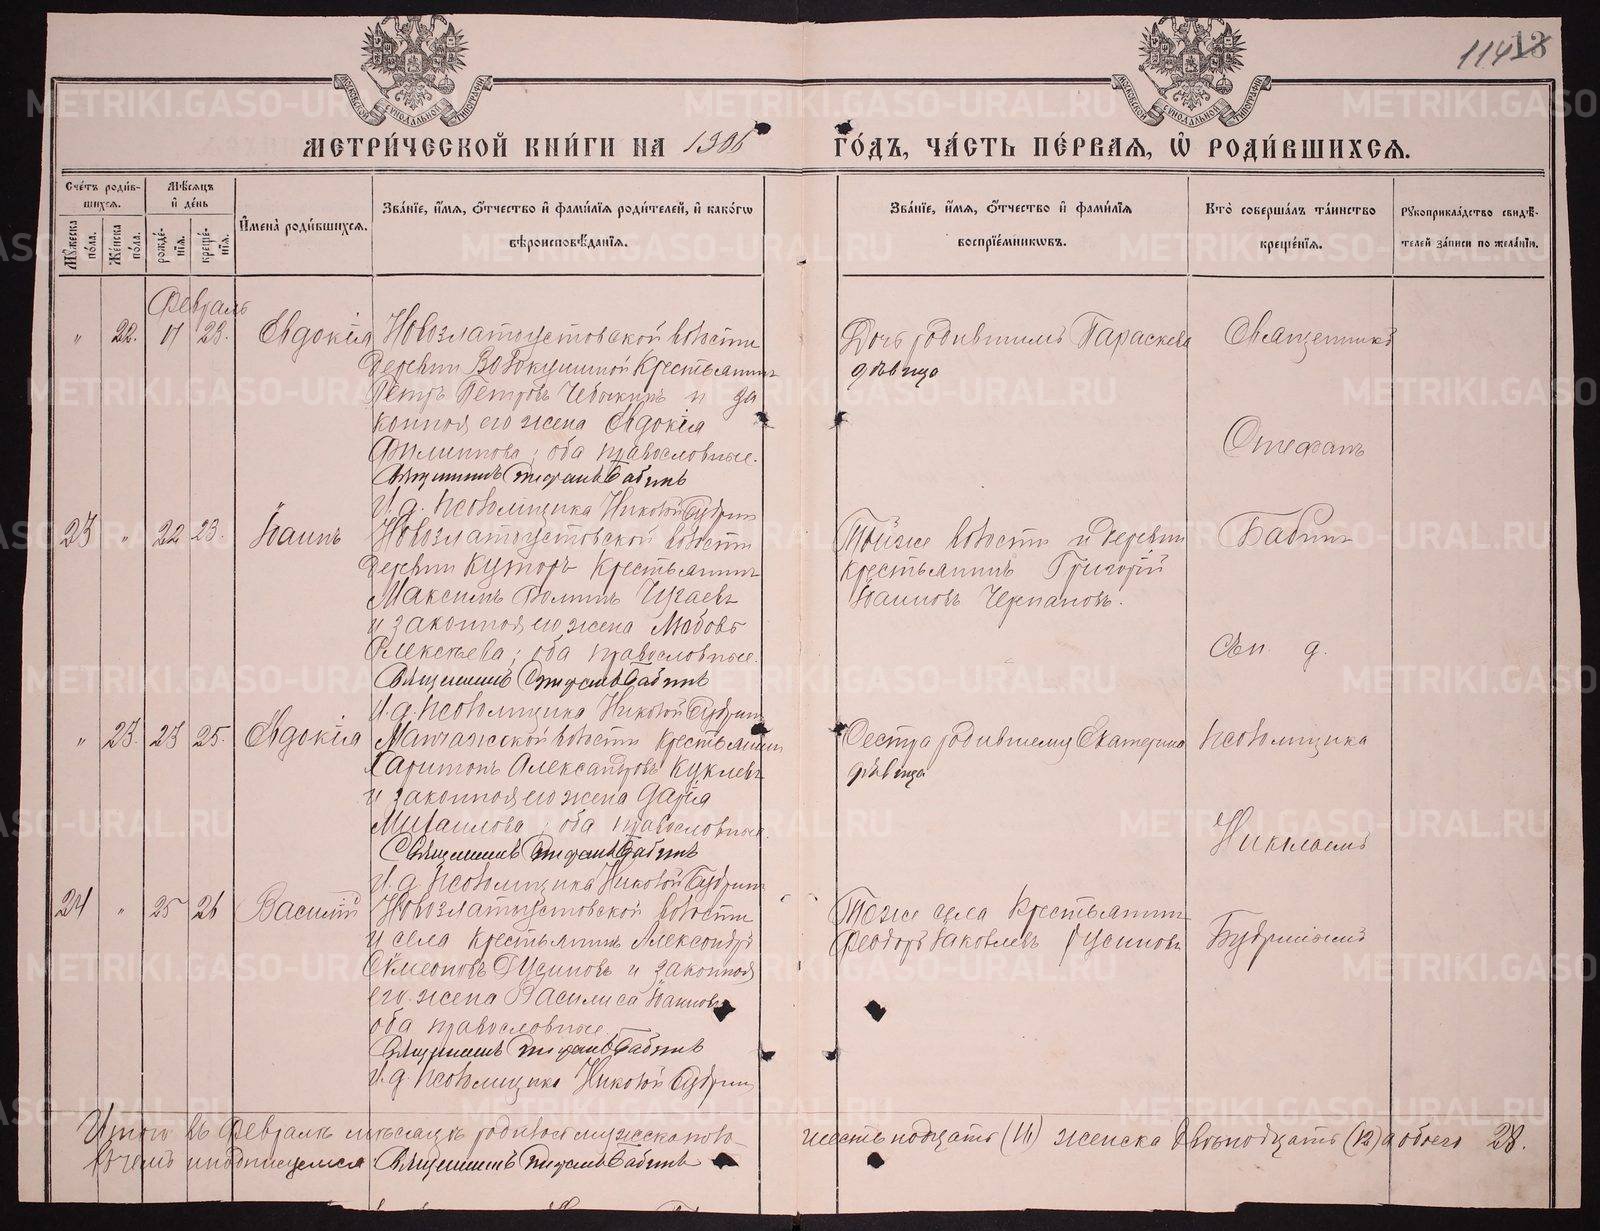 114 18
МОСКОВСКОЙ СѴНОДАЛЬНОЙ ТИПОГРАФІИ
МОСКОВСКОЙ СѴНОДАЛЬНОЙ ТИПОГРАФІИ
МЕТРИ́ЧЕСКОЙ КНИ́ГИ НА 1906 ГО́ДЪ, ЧА́СТЬ ПЕ́РВАЯ, Ѡ҆ РОДИ́ВШИХСЯ.
Сче́тъ роди́вшихся.
Мѣ́сяцъ и҆ де́нь
Мꙋ́жеска по́ла.
Же́нска по́ла.
рожде́нїя.
креще́нїя.
И҆мена̀ роди́вшихся.
Зва́нїе, и҆́мя, ѻ҆́тчество и҆ фами́лїя роди́телей, и҆ како́гѡ вѣроисповѣ́данїя.
Зва́нїе, и҆́мя, ѻ҆́тчество и҆ фами́лїя воспрїе́мникѡвъ.
Кто̀ соверша́лъ та́инство креще́нїя.
Рꙋкоприкла́дство свидѣ́телей за́писи по жела́нїю.
Февраль
„ 22. 17 23. Евдокія
Новозлатоустовской волости
деревни Волокушиной Крестьянинъ
Петръ Петровъ и за
конная его жена Евдокія
Филиппова; оба православные.
Священникъ Стефанъ Бабинъ
И. д. псаломщика Николай Бубрин
Дочь родившимъ Параскева
дѣвица
Священникъ
Стефанъ
23 „ 22 23. Іоаннъ
Новозлатоустовской волости
деревни Хуторъ Крестьянинъ
Максимъ Чугаевъ
и законная его жена Любовь
Алексѣева; оба православные.
Священникъ Стефанъ Бабинъ
И. д. псаломщика Николай Бубрин
Той же волости и деревни
крестьянинъ Григорій
Іоанновъ Черпановъ.
Бабин
съ и. д.
„ 23. 23 25. Евдокія
Манчажской волости Крестьянин
Харитонъ Александровъ Куклевъ
и законная его жена Дарія
Михаилова; оба православные.
Священникъ Стефанъ Бабинъ
И. д. псаломщика Николай Бубрин
Сестра родившему Екатерина
дѣвица
псаломщика
Николаемъ
24 „ 25 26 Василій
Новозлатоустовской волости
и села крестьянинъ Александръ
Симеоновъ Русиновъ и законная
его жена Василиса Іоаннова
оба православные.
Священникъ Стефанъ Бабинъ
И. д. псаломщика Николай Бубрин
Того же села Крестьянинъ
Феодоръ Іаковлевъ Русиновъ
Бубринымъ
Итого въ Февралѣ мѣсяцѣ родилось мужеска пола шестьнадцать (16) женска двѣнадцать (12) а обоего 28.
В чемъ и подписуемся Священникъ Стефанъ Бабинъ